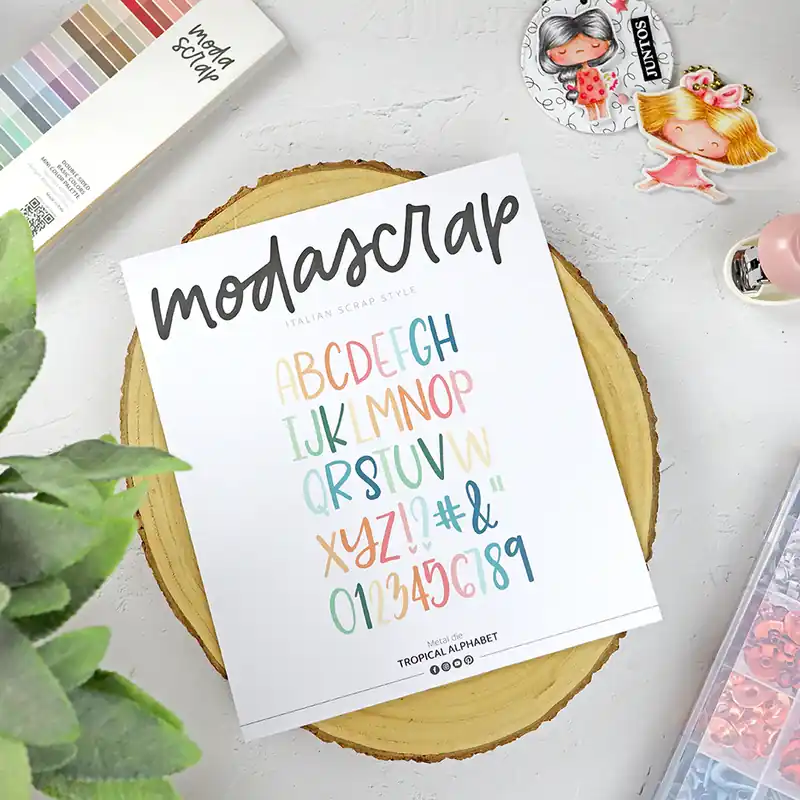 moda
scrap
DOUBLE SIDED
BASIC COLORS
MINI COLOR PALETTE
JUNTOS
modascrap
ITALIAN SCRAP STYLE
ABCDEFGH
IJKLMNOP
QRSTUVW
XYZ!?#&"
0123456789
Metal die
TROPICAL ALPHABET